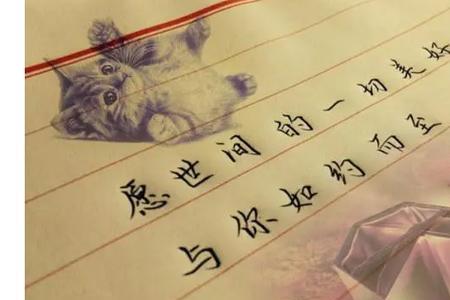 愿世间的一切美好
与你如约而至